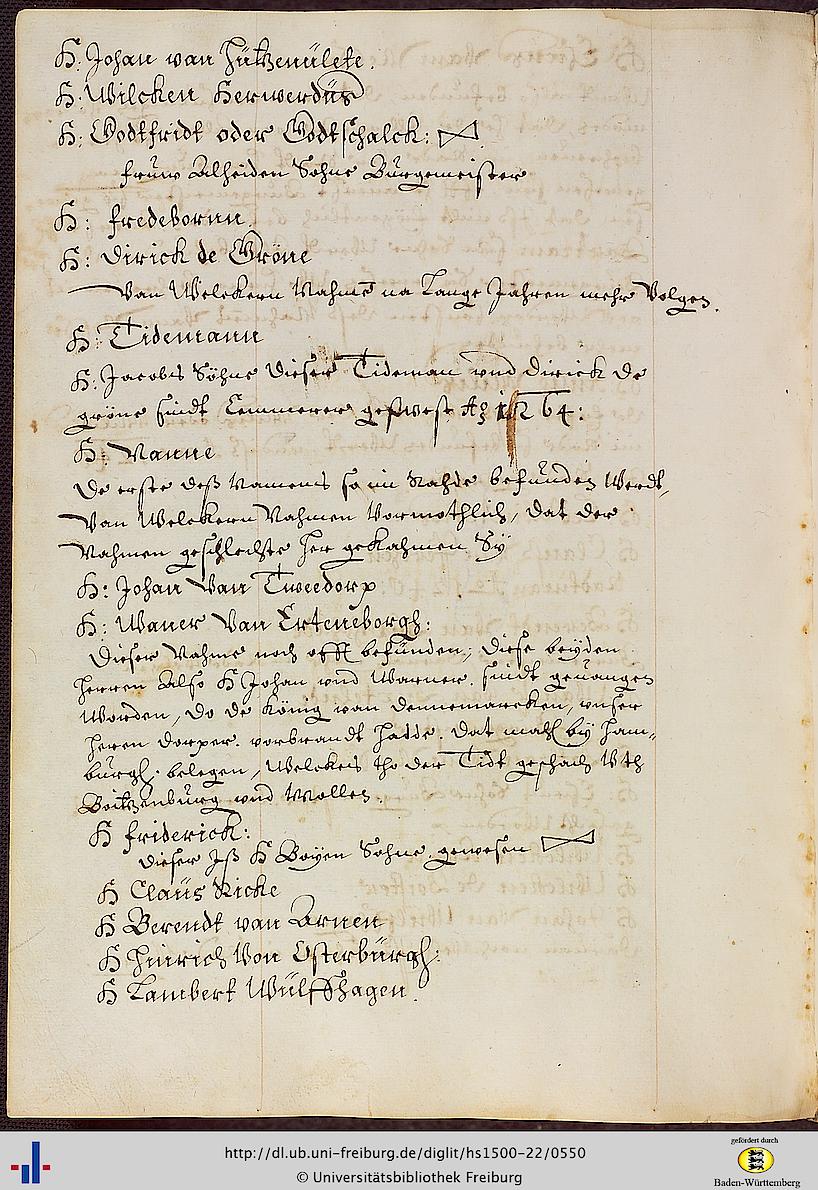 H: Johan van Hützenülete.
H: Wilcken Herwerdüs
H: Godtfridt oder Godtschalck:
fruw Alheiden Sohne Burgemeister
H: Fredebornn.
H: Dirick de Gröne
Van Welckern Nahmē na Lange Jahren mehr Volgen.
H: Tidemann
H: Jacobs Söhne dieser Tideman vnd Dirick de
gröne sindt Cemmerer gewest Aō 1264:
H: Nanne
De erste deß Namens so im Rahde befunden Werdt,
Van Welckern Nahmen Vormothlich, dat der
Nahmen geschlechte her gekahmen Sy
H: Johan Van Tweedorp
H: Waner Van Erteneborgh:
Dieser Nahme noch offt befunden, diese beyden
herren Also H Johan vnd Warner. sindt geuangen
Worden, do de König van dennemarcken, vnser
heren dorper. vorbrandt hatte. dat mahl by Ham-
burgh. belegen, Welckes tho der Tidt geschach Vth
Boitzenburg vnd Mollen.
H friderick:
dieser Iß H Boyen Sohne. gewesen
H Claüs Ricke
H Berendt van Arnen
H Hinrich Von Osterbürgh:
H Lambert Wülffhagen.
http://dl.ub.uni-freiburg.de/diglit/hs1500-22/0550
© Universitätsbibliothek Freiburg
gefördert durch
Baden-Württemberg